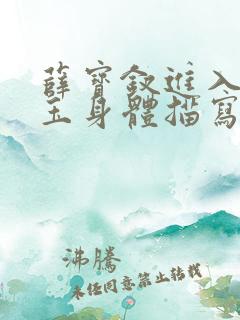 薛寶釵進入
玉身體描寫
沸騰
未任同意禁止轉載